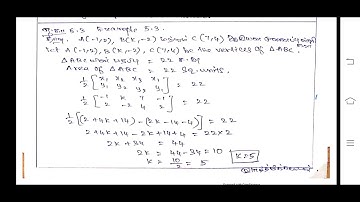 5.3 Example 5.3.
A(-1,2), B(k,-2) மற்றும் C(7,4)
Let A(-1,2), B(k,-2), C(7,4) be the vertices of ΔABC.
ΔABC யின் பரப்பு = 22 ச.அ
Area of ΔABC = 22 sq. units.
1/2 [x₁ x₂ x₃ x₁
y₁ y₂ y₃ y₁] = 22
1/2 [-1 k 7 -1
2 -2 4 2] = 22
1/2 [(2+4k+14)-(2k-14-4)] = 22
2+4k+14-2k+14+4 = 22x2
2k+34 = 44
2k = 44-34 = 10
k = 10/2 = 5 k=5